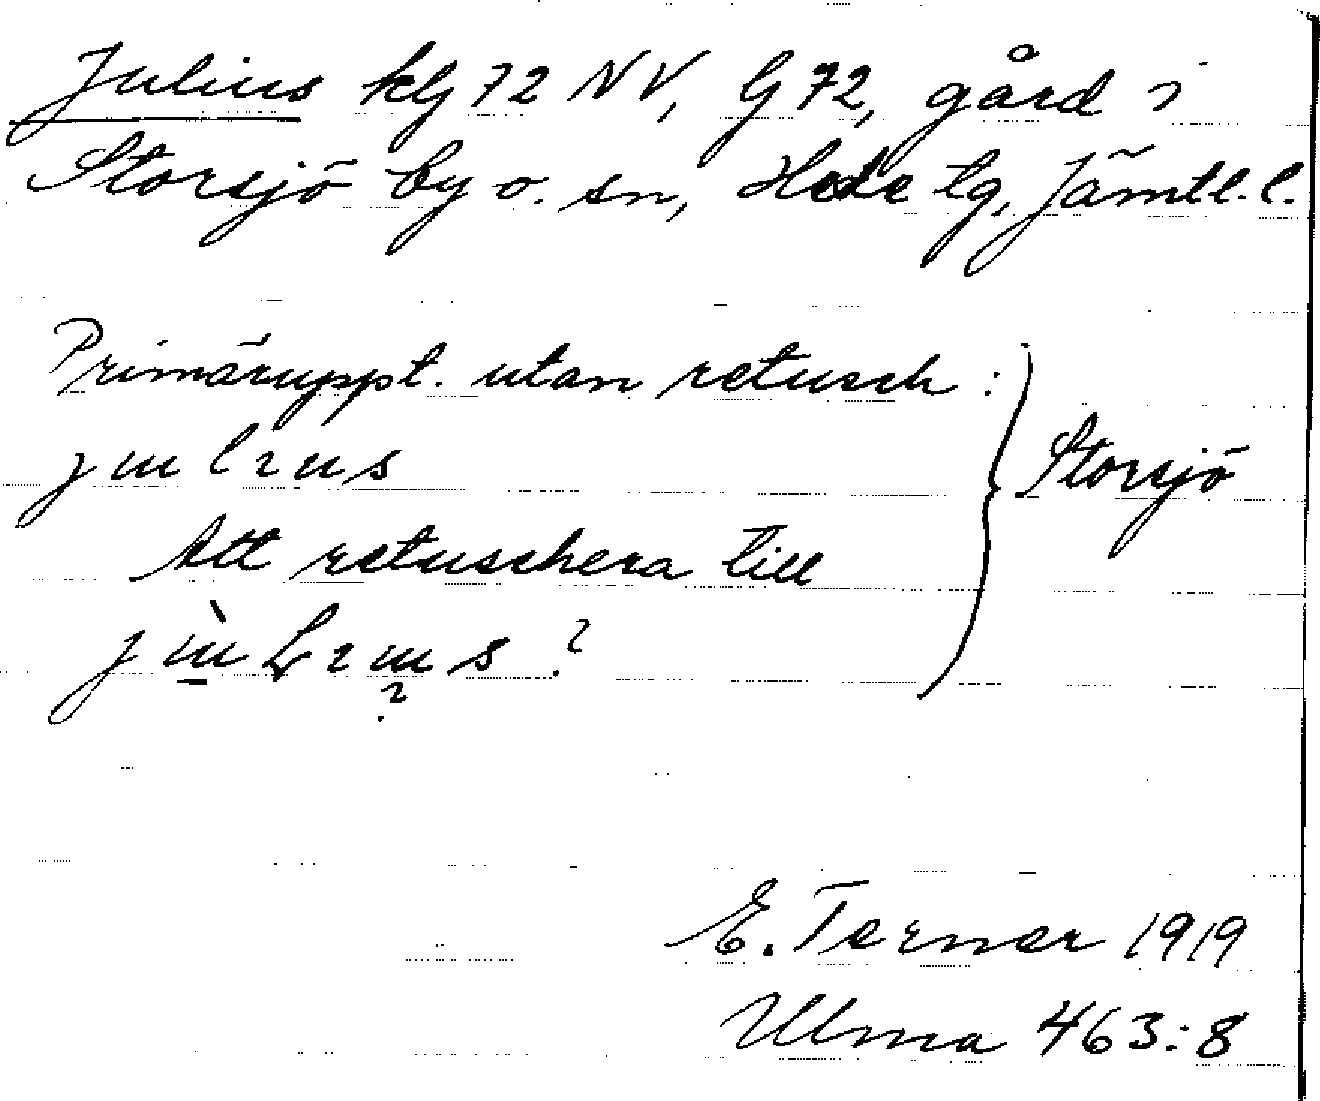 Julius kG 72 NV, G 72, gård i
Storsjö by o. sn, Hede tg, Jämtl. l.
Primäruppt. utan retusch :
Storsjö
Att retuschera till
E. Terner 1919
Ulma 463:8